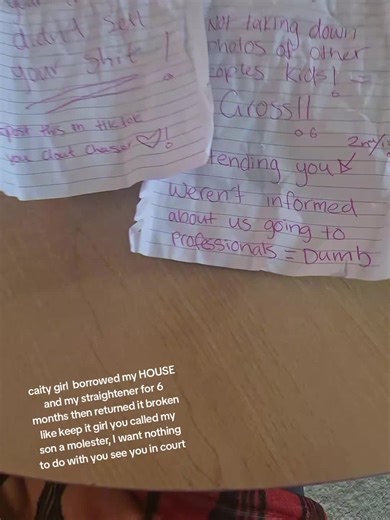 didn't sell
your shit!
post this on tiktok
you clout chaser ♡!
Not taking down
photos of other
peoples kids! =
Gross!!
tending you
weren't informed
about us going to
professionals = Dumb
caity girl borrowed my HOUSE
and my straightener for 6
months then returned it broken
like keep it girl you called my
son a molester, I want nothing
to do with you see you in court